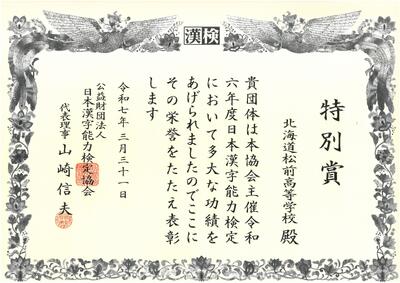 漢検
特別賞
北海道松前高等学校 殿
貴団体は本協会主催令和
六年度日本漢字能力検定
において多大な功績を
あげられましたのでここに
その栄誉をたたえ表彰
します
令和七年三月三十一日
公益財団法人
日本漢字能力検定協会
代表理事 山崎信夫